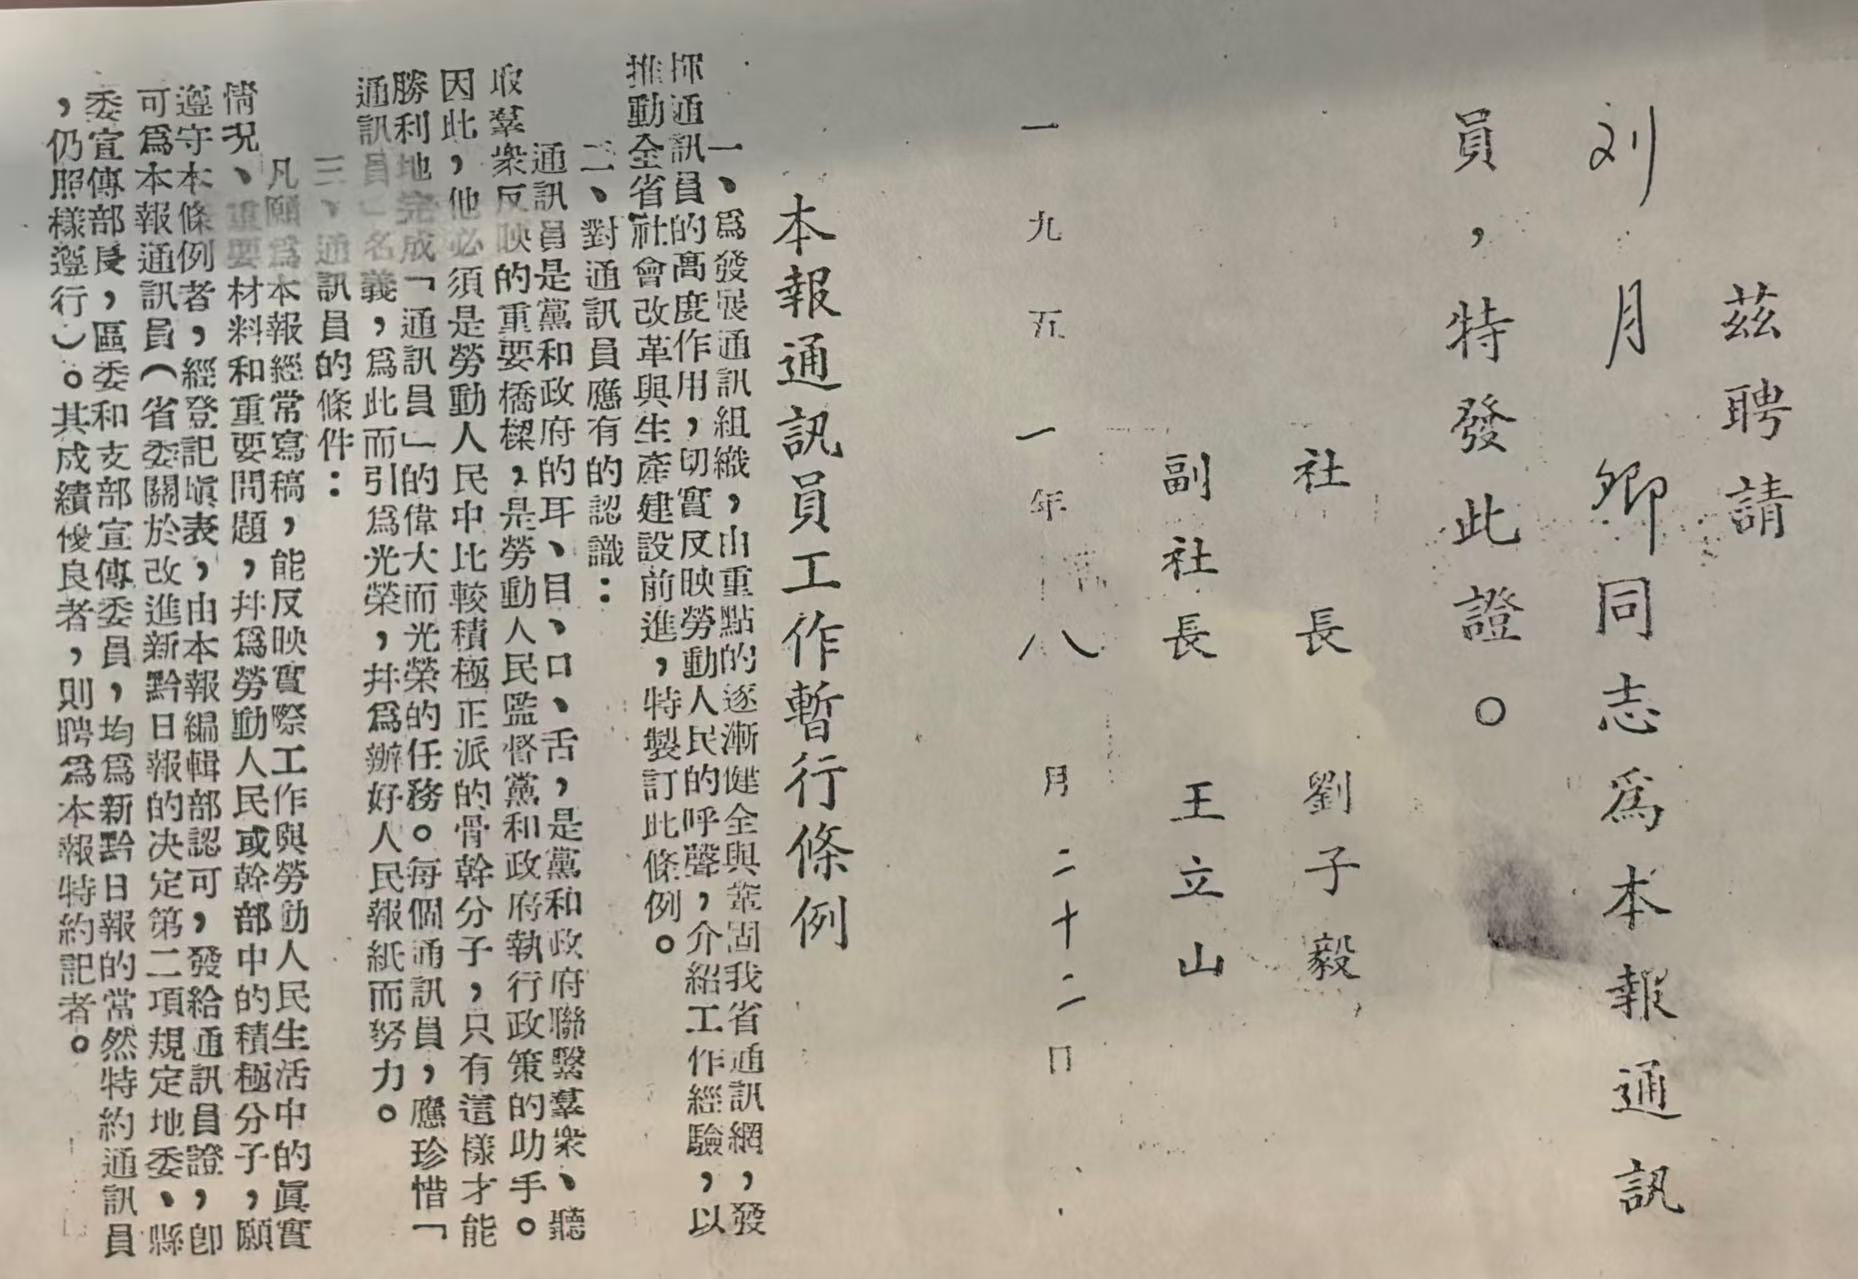 茲聘請
刘月卿同志為本報通訊
員，特發此證。
社長 劉子毅
副社長 王立山
一九五一年八月二十二日
本報通訊員工作暫行條例
一、爲發展通訊組織，由重點的逐漸健全與鞏固我省通訊網，發
揮通訊員的高度作用，切實反映勞動人民的呼聲，介紹工作經驗，以
推動全省社會改革與生產建設前進，特製訂此條例。
二、對通訊員應有的認識：
通訊員是黨和政府的耳、目、口、舌，是黨和政府聯繫羣衆、聽
取羣衆反映的重要橋樑，是勞動人民監督黨和政府執行政策的助手。
因此，他必須是勞動人民中比較積極正派的骨幹分子，只有這樣才能
勝利地完成「通訊員」的偉大而光榮的任務。每個通訊員，應珍惜「
通訊員」名義，爲此而引爲光榮，幷爲辦好人民報紙而努力。
三、通訊員的條件：
凡願爲本報經常寫稿，能反映實際工作與勞動人民生活中的眞實
情況、重要材料和重要問題，幷爲勞動人民或幹部中的積極分子，願
遵守本條例者，經登記塡表，由本報編輯部認可，發給通訊員證，卽
可爲本報通訊員（省委關於改進新黔日報的決定第二項規定地委、縣
委宣傳部長，區委和支部宣傳委員，均爲新黔日報的常然特約通訊員
，仍照樣遵行）。其成績優良者，則聘爲本報特約記者。